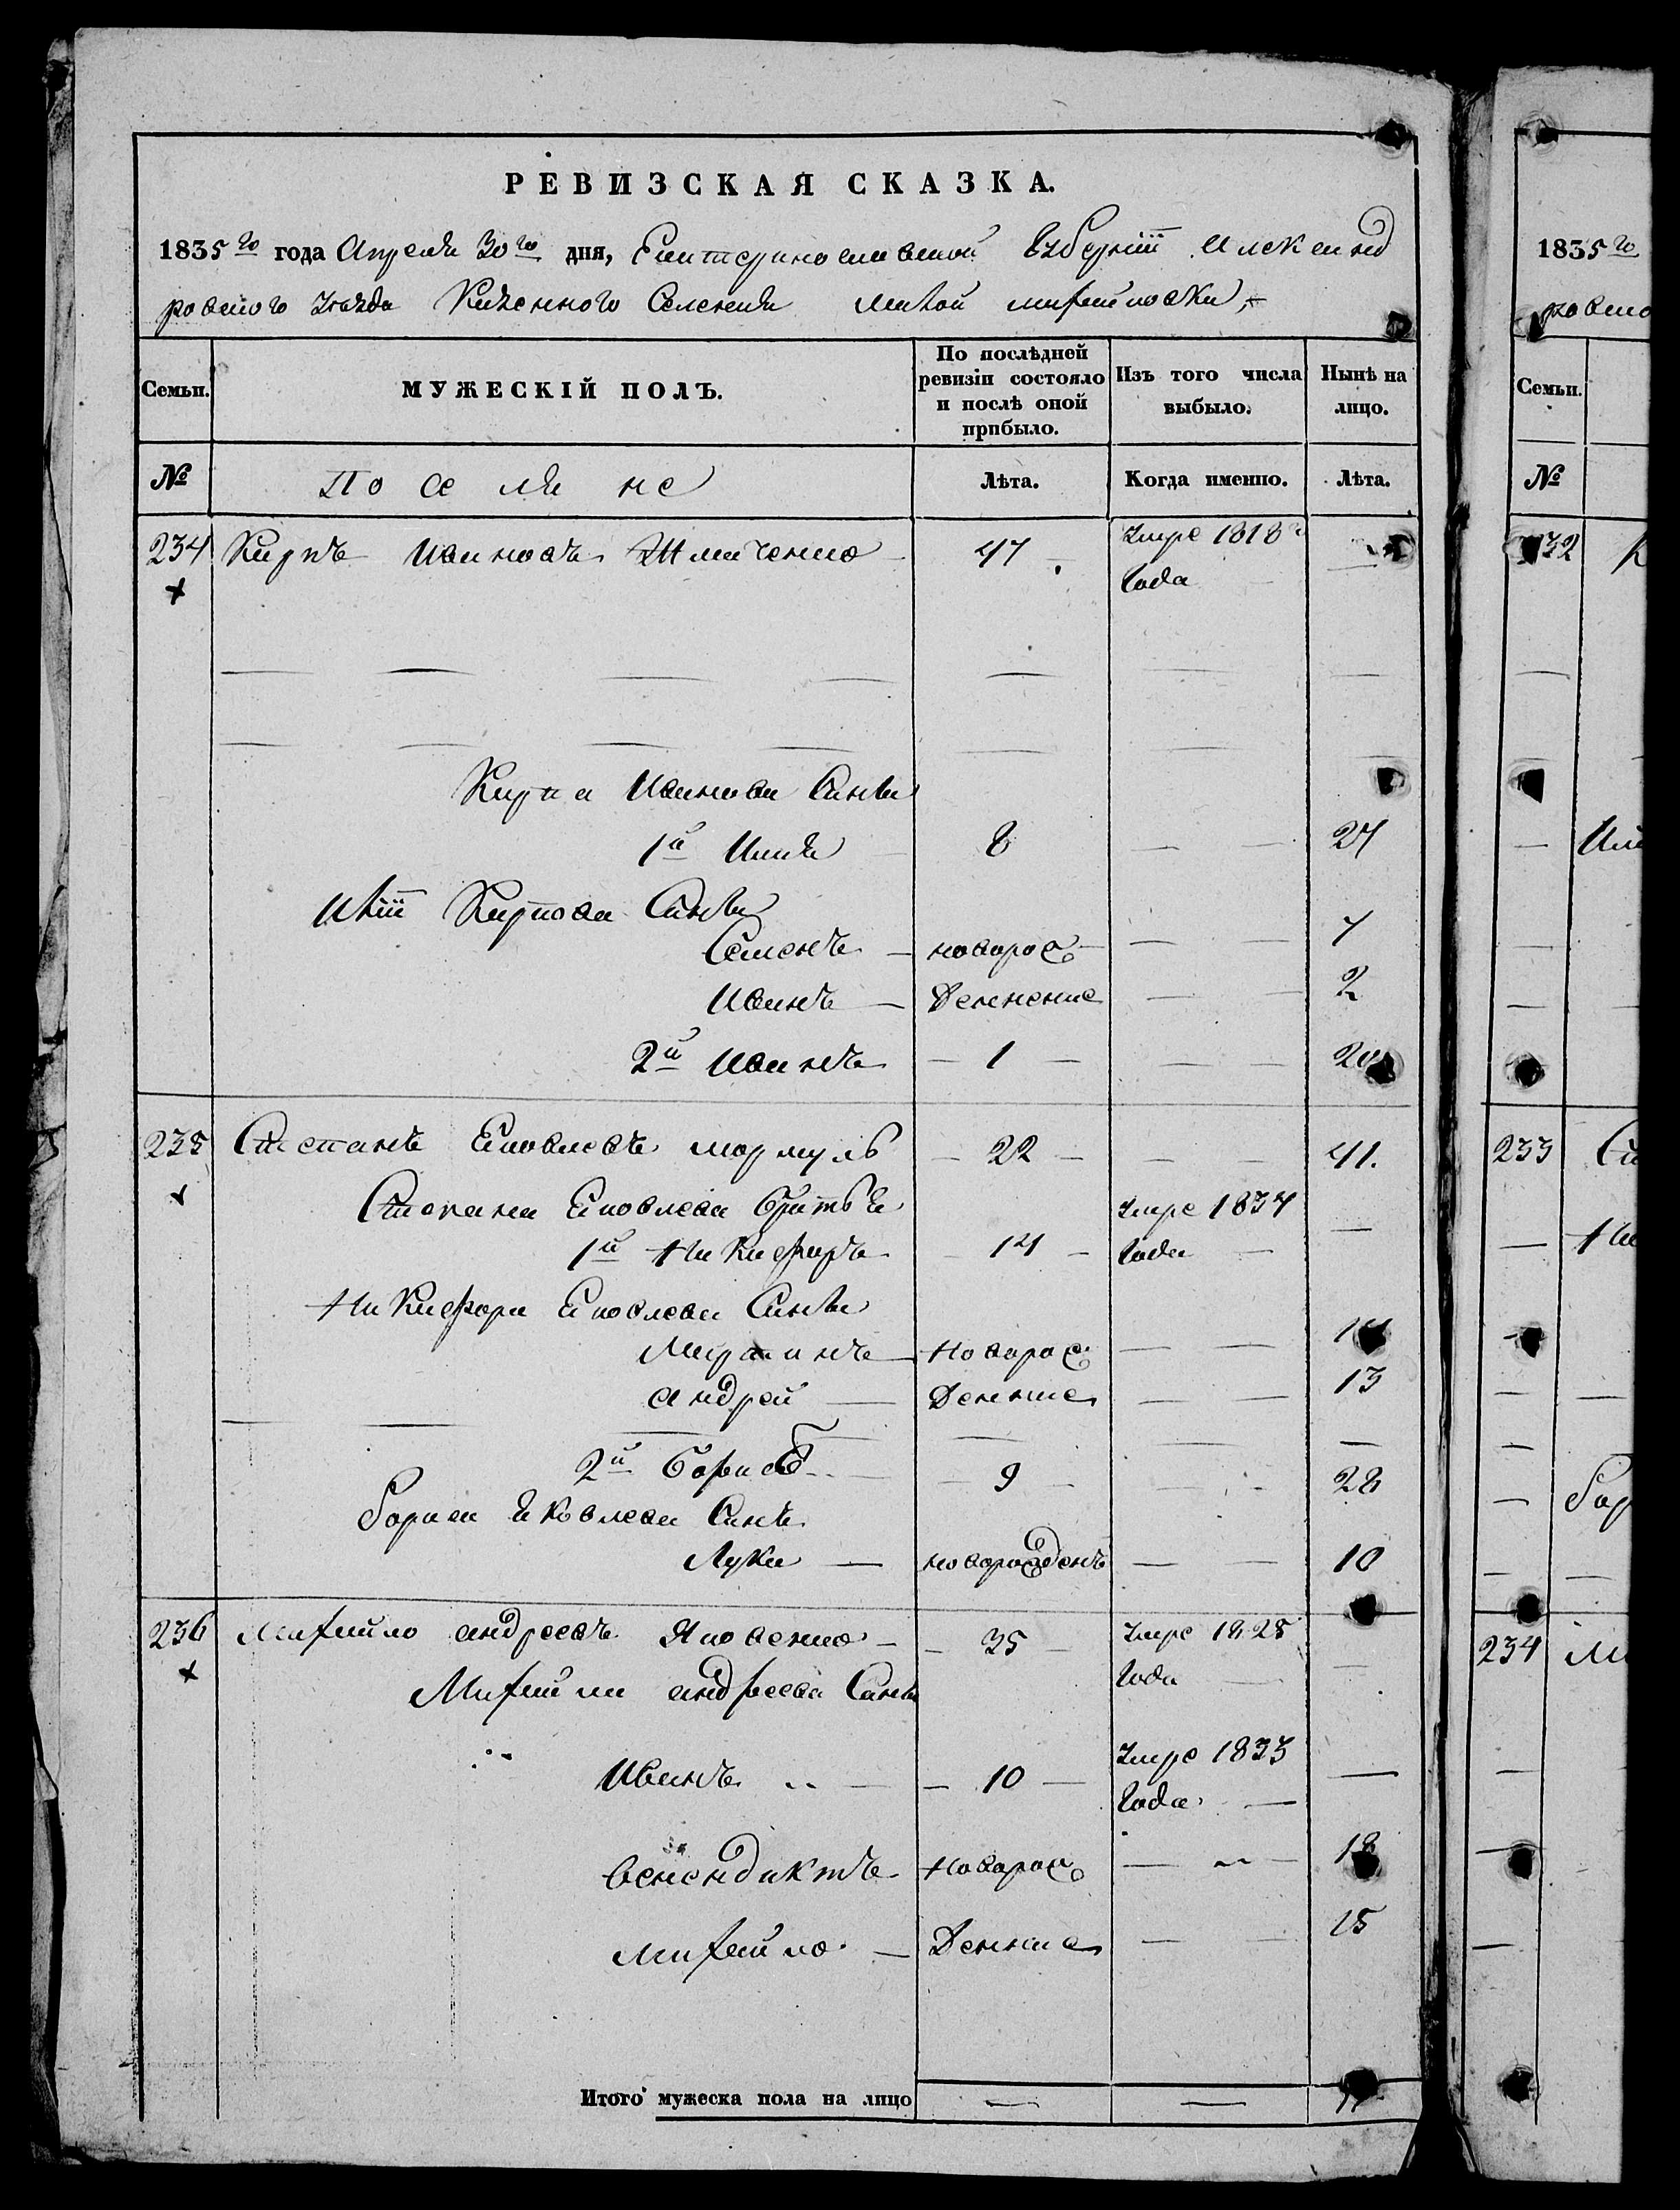 РЕВИЗСКАЯ СКАЗКА.
1835го года Апреля 30го дня, Екатеринославской Губернiи Александ
ровского Уезда Казенного Селения Малой михайловки,
Семьи.
МУЖЕСКІЙ ПОЛЪ.
По послѣдней ревизіи состояло и послѣ оной прибыло.
Изъ того числа выбыло.
Нынѣ на лицо.
№
Поселяне
Лѣта.
Когда именно.
Лѣта.
234 Карпъ Ивановъ 47 Умре 1818
года
Карпа Иванова Сынвя
1й Илья 8 27
Ильи Карпова Сынвя
Семенъ новорож 7
Иванъ денение 2
2й Иванъ 1 20
235 Степанъ Яковлевъ мормуль 22 41.
Степана Яковлева братья Умре 1834
1й Никифоръ 14 года
Никифора Яковлева Сынвя
новорож
андрей денние 13
2й борисъ 9 28
бориса Яковлева Сынъ
Лука новорожденъ 10
236 михайло андреевъ Яковенко 35 Умре 1825
Михайлы андреева Сынвя года
Иванъ 10 Умре 1833
года
венендиктъ новорож 18
михайло денние 15
Итого мужеска пола на лицо
1835го
ровско
Семьи.
№
232 К
Иль
233 Ст
Ни
бор
234 Ми